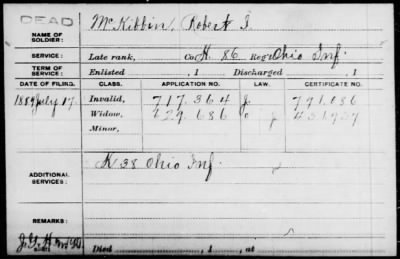 DEAD
NAME OF SOLDIER: McKibbin, Robert S.
SERVICE: Late rank, Co. H. 86 Reg't Ohio Inf.
TERM OF SERVICE: Enlisted , 1 Discharged , 1
DATE OF FILING. CLASS. APPLICATION NO. LAW. CERTIFICATE NO.
1889 July 17. Invalid, 717.364 J.
Widow, 429.686
Minor,
ADDITIONAL SERVICES: K 38 Ohio Inf.
REMARKS:
Died , 1 , at